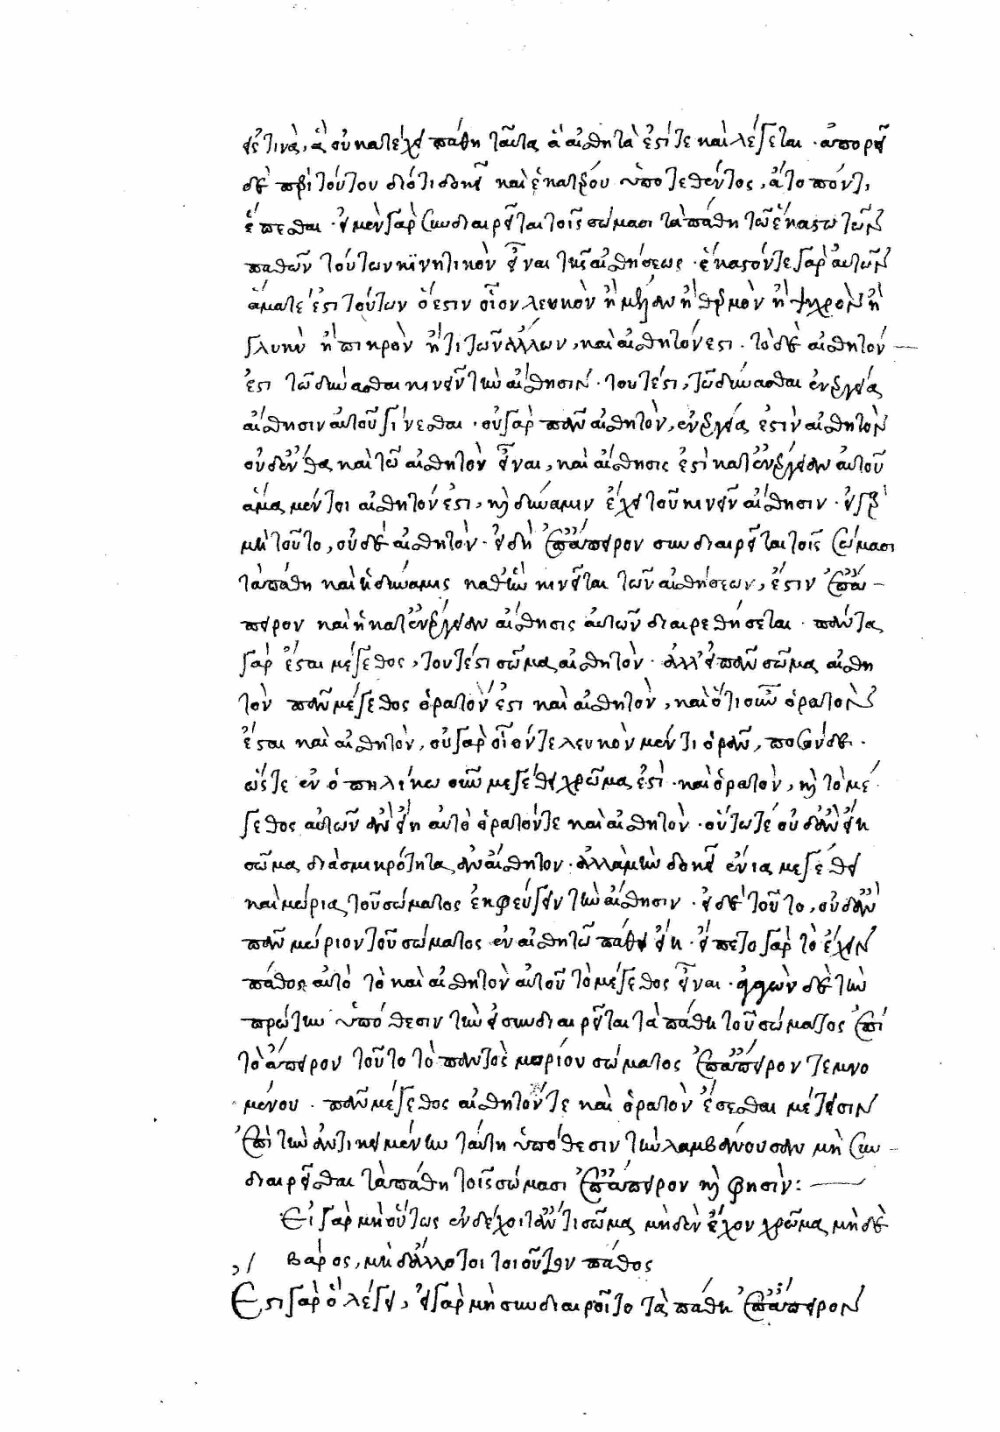 εῖ τινὰ, ἃ οὐκ ἀπέχει πάθη ταῦτα ἃ αἰσθητὰ ἐστί τε καὶ λέγεται · ἀπορεῖ
δὲ περὶ τούτου διότι δοκεῖ καὶ ἑκατέρου ὑποτεθέντος, ἄτοπόν τι
ἕπεσθαι · εἰ μὲν γὰρ συνδιαιρεῖται τοῖς σώμασι τὰ πάθη τῶ ἕκαστω τῶν
παθῶν τούτων κινητικὸν εἶναι τῆς αἰσθήσεως · ἕκαστόν τε γὰρ αὐτῶν
ἅμα τέ ἐστι τούτων ὅ ἐστιν οἷον λευκὸν ἢ μέλαν ἢ θερμὸν ἢ ψυχρὸν ἢ
γλυκὺ ἢ πικρὸν ἤ τι τῶν ἄλλων, καὶ αἰσθητόν ἐστι · τὸ δὲ αἰσθητόν
ἐστι τῶ δύνασθαι κινεῖν τὴν αἴσθησιν · τουτέστι, τῶ δύνασθαι ἐνεργεία
αἴσθησιν αὐτοῦ γίνεσθαι · οὐ γὰρ πᾶν αἰσθητὸν, ἐνεργεία ἐστὶν αἰσθητὸν
οὐδ' ἔνθα καὶ τῶ αἰσθητὸν εἶναι, καὶ αἴσθησις ἐστὶ κατ' ἐνέργειαν αὐτοῦ
ἅμα μέν τοι αἰσθητόν ἐστι, καὶ δύναμιν ἔχει τοῦ κινεῖν αἴσθησιν · εἰ γὰρ
μὴ τοῦτο, οὐδὲ αἰσθητὸν · εἰ δὴ ἐπ' ἄπειρον συνδιαιρεῖται τοῖς σώμασι
τὰ πάθη καὶ ἡ δύναμις καθ' ἣν κινεῖται τῶν αἰσθήσεων, ἔστιν ἐπ' ἄ
πειρον καὶ ἡ κατ' ἐνέργειαν αἴσθησις αὐτῶν διαιρεθήσεται · πάντα
γὰρ ἔσται μέγεθος, τουτέστι σῶμα αἰσθητὸν · ἀλλ' εἰ πᾶν σῶμα αἰσθη
τὸν πᾶν μέγεθος ὁρατόν ἐστι καὶ αἰσθητὸν, καὶ ὅτι οὖν ὁρατὸν
ἔσται καὶ αἰσθητὸν, οὐ γὰρ οἷόν τε λευκὸν μέν τι ὁρᾶν, ποσὸν δὲ ·
ὥστε ἐν ὁπηλίκω οὖν μεγέθει χρῶμα ἐστὶ · καὶ ὁρατὸν, καὶ τὸ μέ
γεθος αὐτῶν ἂν εἴη αὐτὸ ὁρατόν τε καὶ αἰσθητὸν · οὕτω τέ οὐδὲν ἂν εἴη
σῶμα διὰ σμικρότητα ἀναίσθητον · ἀλλὰ μὴν δοκεῖ ἔνια μεγέθη
καὶ μόρια τοῦ σώματος ἐκφεύγειν τὴν αἴσθησιν · εἰ δὲ τοῦτο, οὐδ' ἂν
πᾶν μόριον τοῦ σώματος ἐν αἰσθητῶ πάθει εἴη · εἵπετο γὰρ τὸ ἔχειν
πάθος αὐτὸ τὸ καὶ αἰσθητὸν αὐτοῦ τὸ μέγεθος εἶναι · θεὶς δὲ τὴν
πρώτην ὑπόθεσιν τὴν εἰ συνδιαιρεῖται τὰ πάθη τοῦ σώματος ἐπὶ
τὸ ἄπειρον τοῦτο τὸ παντὸς μορίου σώματος ἐπ' ἄπειρον τεμνο
μένου · πᾶν μέγεθος αἰσθητόν τε καὶ ὁρατὸν ἔσεσθαι μέτεισιν
ἐπὶ τὴν ἀντικειμένην ταύτη ὑπόθεσιν τὴν λαμβάνουσαν μὴ συν
διαιρεῖσθαι τὰ πάθη τοῖς σώμασι ἐπ' ἄπειρον καὶ φησὶν :
Εἰ γὰρ μὴ οὕτως ἐνδέχοιτ' ἄν τι σῶμα μηδὲν ἔχον χρῶμα μηδὲ
βάρος, μηδ' ἄλλο τοι τοιοῦτον πάθος
Ἔστι γὰρ ὃ λέγει, εἰ γὰρ μὴ συνδιαιροῖτο τὰ πάθη ἐπ' ἄπειρον